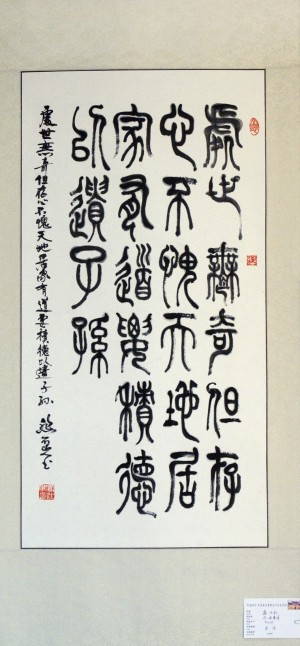 處世無奇但存
心不愧天地居
家有道要積德
以遺子孫
處世無奇但存心不愧天地居家有道要積德以遺子孫